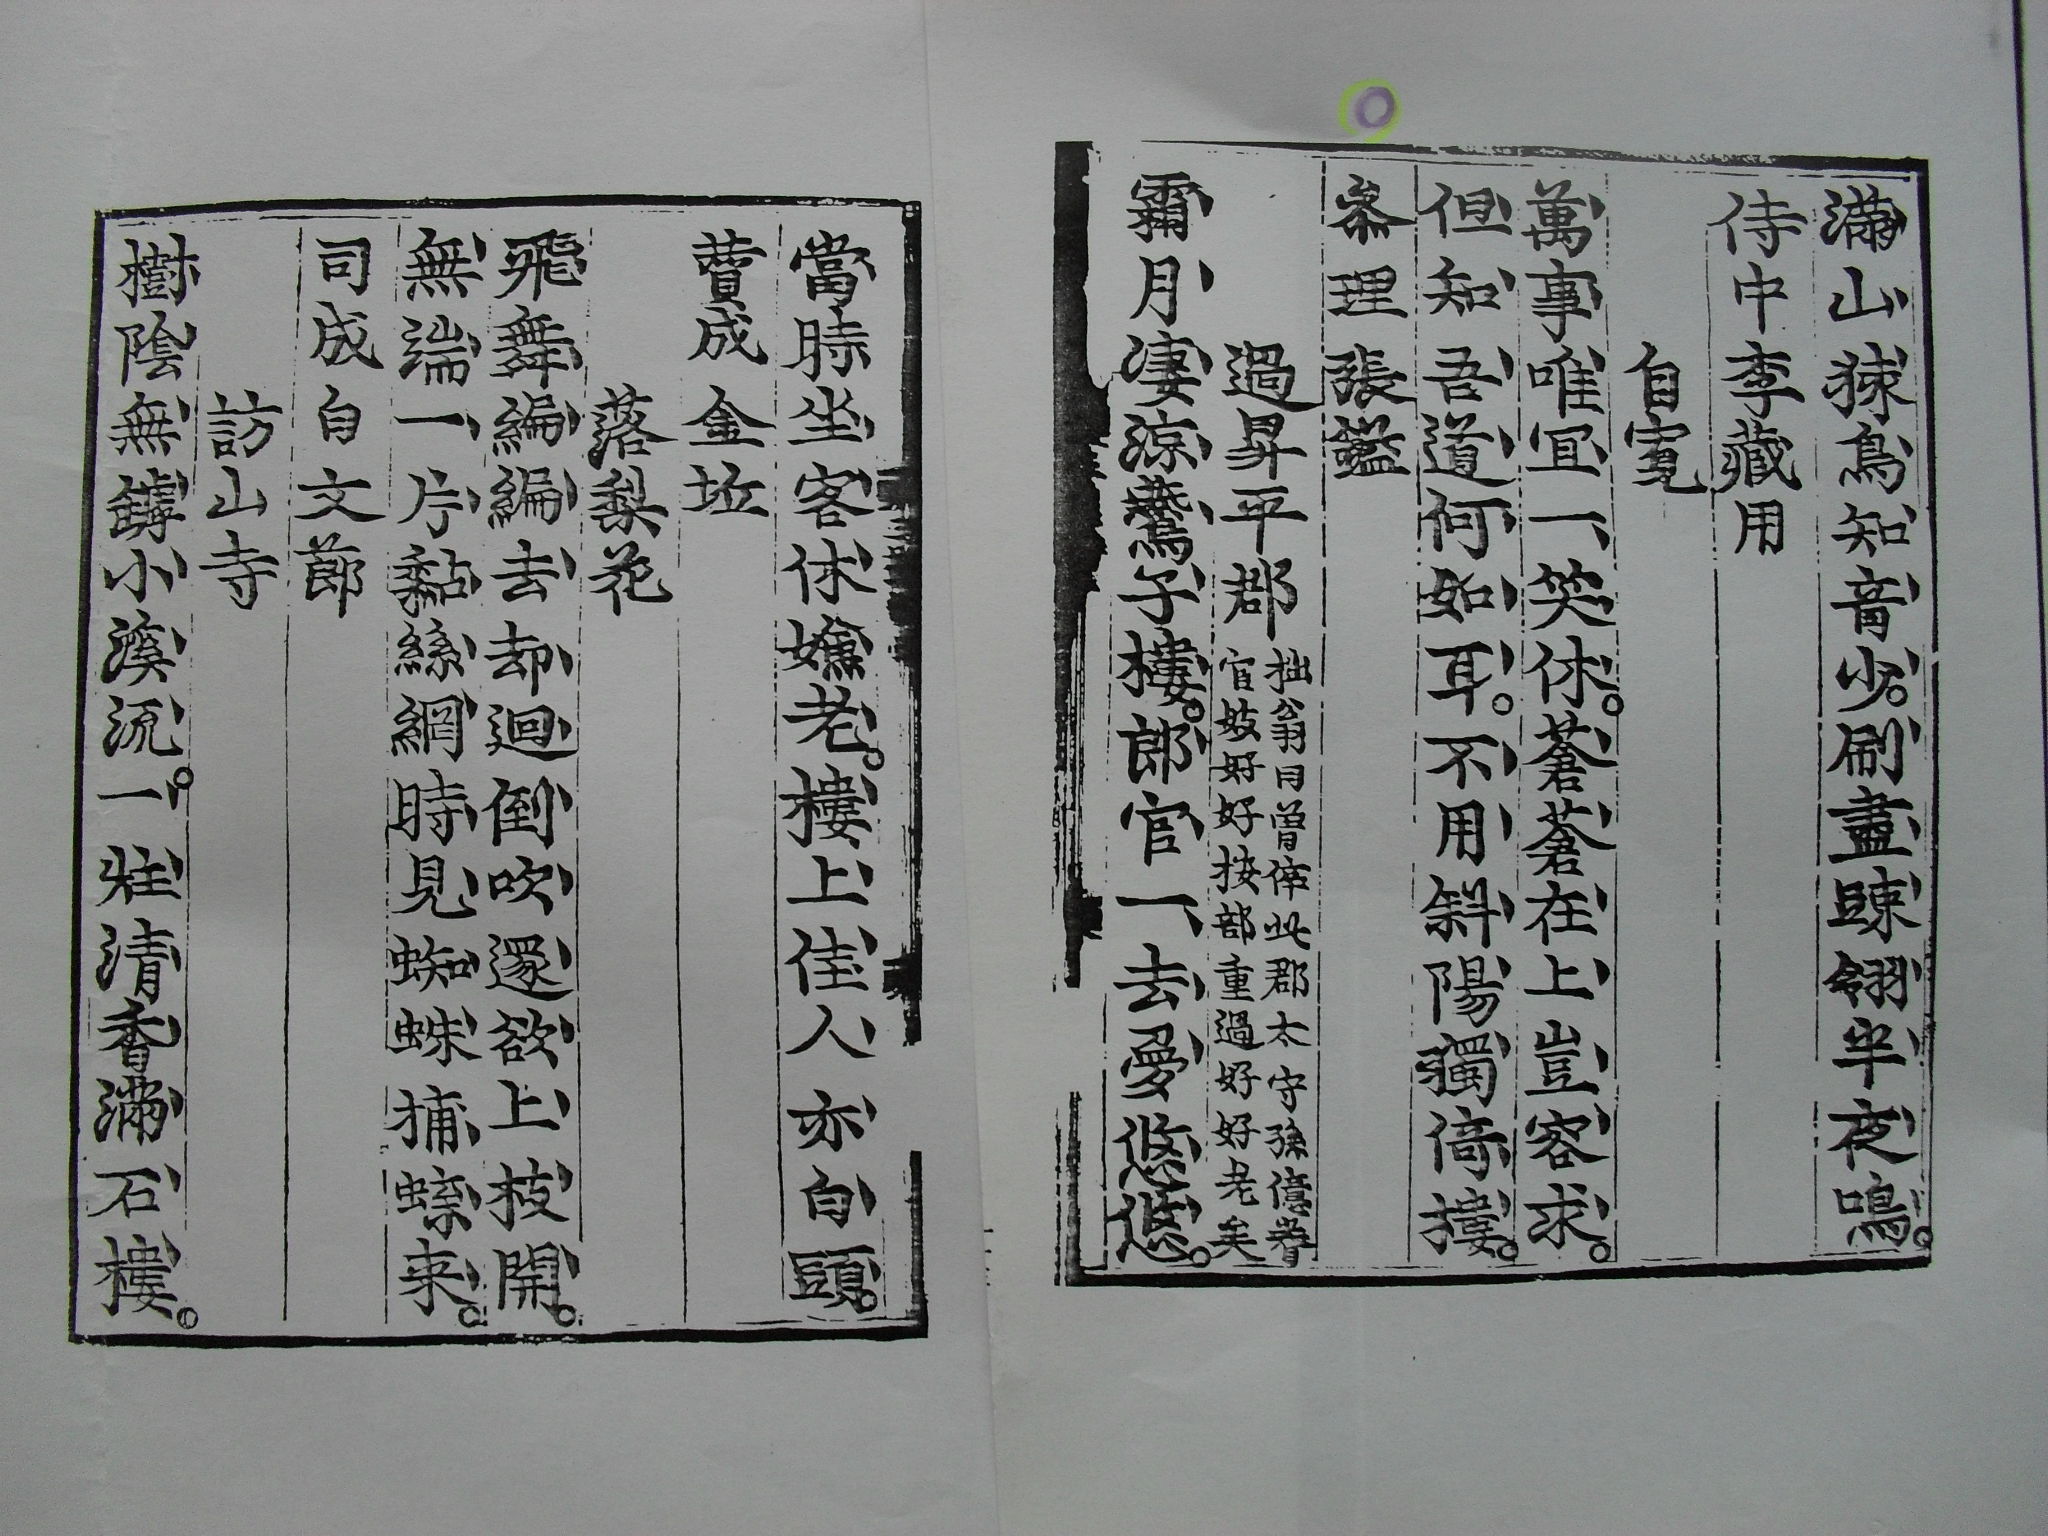 滿山猿鳥知音少刷盡踈翎半夜鳴
侍中李藏用
自寬
萬事唯宜一笑休蒼蒼在上豈容求
但知吾道何如耳不用斜陽獨倚樓
叅理張鎰
過昇平郡
拙翁曰曾倅此郡太守孫億眷
官妓好好按部重過好好老矣
霜月凄涼鷰子樓郎官一去夢悠悠
當時坐客休嫌老樓上佳人亦白頭
賛成金坵
落梨花
飛舞翩翩去却迴倒吹還欲上枝開
無端一片黏絲網時見蜘蛛捕蝶来
司成白文節
訪山寺
樹陰無罅小溪流一炷清香滿石樓